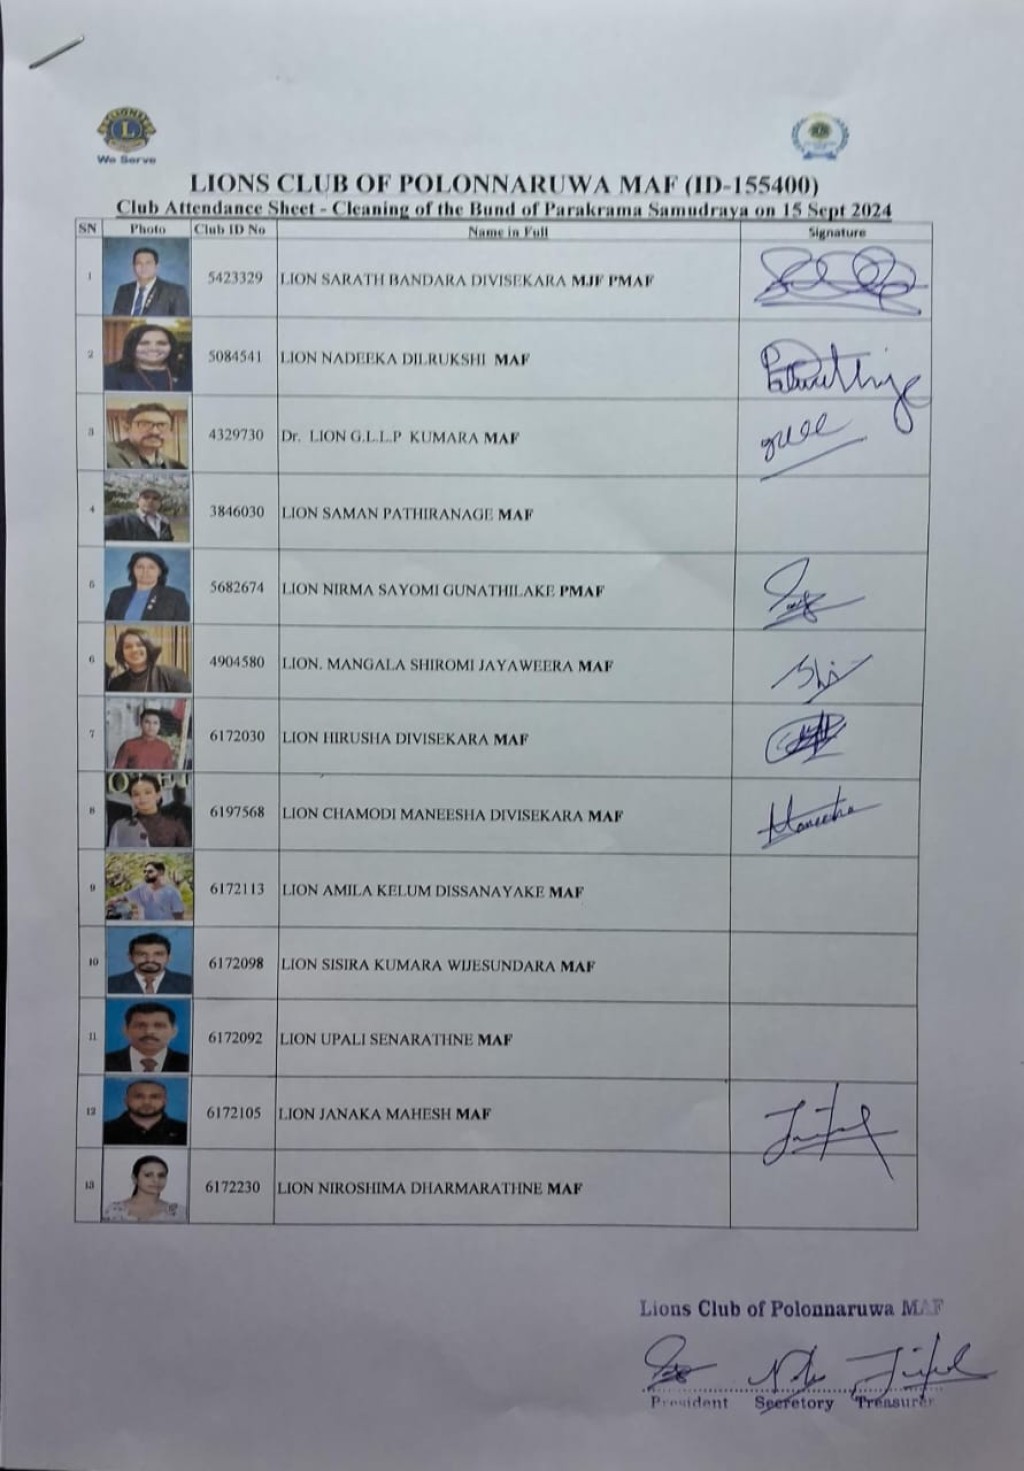 LIONS
L
We Serve
LIONS CLUB OF POLONNARUWA MAF (ID-155400)
Club Attendance Sheet - Cleaning of the Bund of Parakrama Samudraya on 15 Sept 2024
SN Photo Club ID No Name in Full Signature
1 5423329 LION SARATH BANDARA DIVISEKARA MJF PMAF
2 5084541 LION NADEEKA DILRUKSHI MAF
3 4329730 Dr. LION G.L.L.P KUMARA MAF
4 3846030 LION SAMAN PATHIRANAGE MAF
5 5682674 LION NIRMA SAYOMI GUNATHILAKE PMAF
6 4904580 LION. MANGALA SHIROMI JAYAWEERA MAF
7 6172030 LION HIRUSHA DIVISEKARA MAF
8 6197568 LION CHAMODI MANEESHA DIVISEKARA MAF Maneesha
9 6172113 LION AMILA KELUM DISSANAYAKE MAF
10 6172098 LION SISIRA KUMARA WIJESUNDARA MAF
11 6172092 LION UPALI SENARATHNE MAF
12 6172105 LION JANAKA MAHESH MAF
13 6172230 LION NIROSHIMA DHARMARATHNE MAF
Lions Club of Polonnaruwa MAF
President Secretory Treasurer